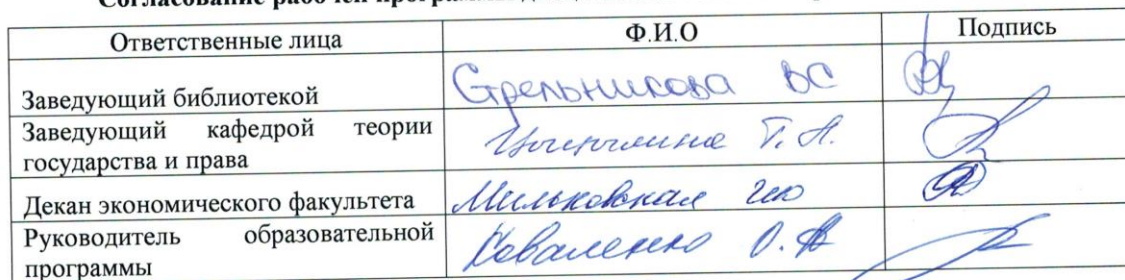 Согласование рабочей программы
Ответственные лица Ф.И.О Подпись
Заведующий библиотекой Стрельникова ВС
Заведующий кафедрой теории
государства и права Т. А.
Декан экономического факультета Мильковская
Руководитель образовательной
программы Коваленко О.